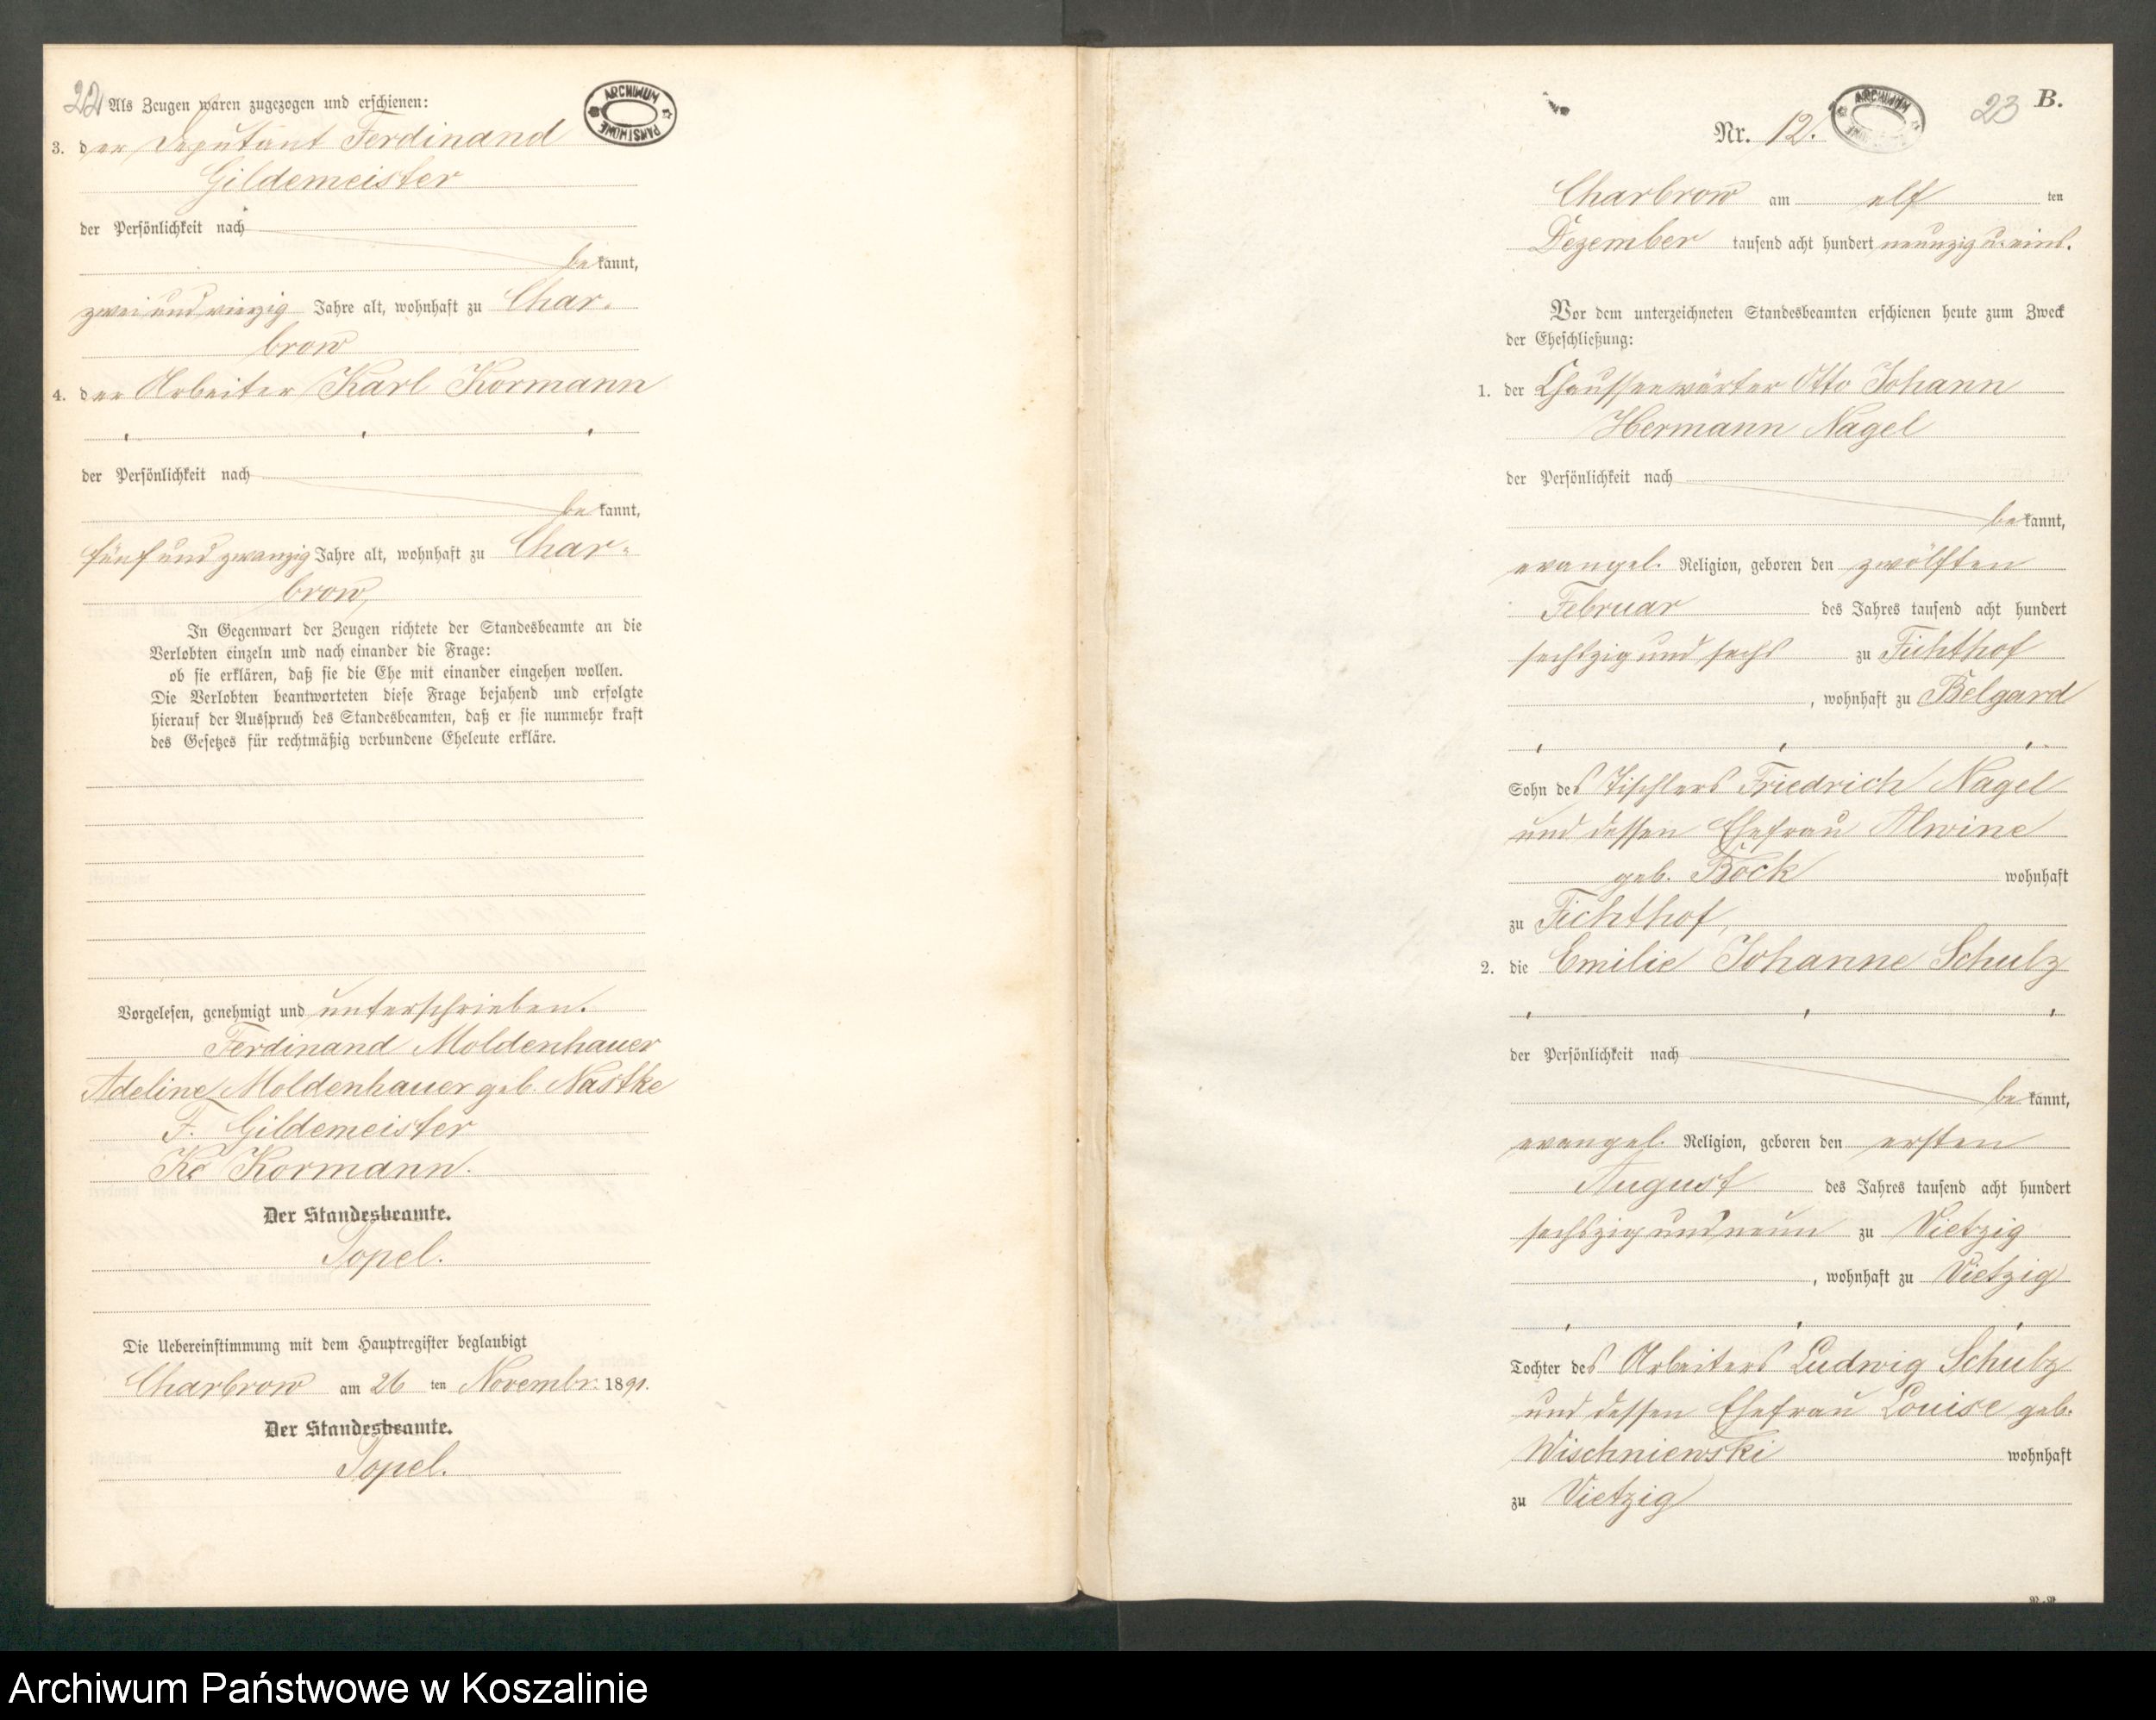 22 Als Zeugen waren zugezogen und erschienen:
ARCHIWUM PAŃSTWOWE
3. der Deputant Ferdinand
Gildemeister
der Persönlichkeit nach
be kannt,
zwei und vierzig Jahre alt, wohnhaft zu Char-
brow
4. der Arbeiter Karl Kormann
der Persönlichkeit nach
be kannt,
fünf und zwanzig Jahre alt, wohnhaft zu Char-
brow,
In Gegenwart der Zeugen richtete der Standesbeamte an die
Verlobten einzeln und nach einander die Frage:
ob sie erklären, daß sie die Ehe mit einander eingehen wollen.
Die Verlobten beantworteten diese Frage bejahend und erfolgte
hierauf der Ausspruch des Standesbeamten, daß er sie nunmehr kraft
des Gesetzes für rechtmäßig verbundene Eheleute erkläre.
Vorgelesen, genehmigt und unterschrieben.
Ferdinand Moldenhauer
Adeline Moldenhauer geb. Nastke
F. Gildemeister
K. Kormann.
Der Standesbeamte.
Topel.
Die Uebereinstimmung mit dem Hauptregister beglaubigt
Charbrow am 26 ten Novembr. 1891.
Der Standesbeamte.
Topel.
23 B.
Nr. 12.
ARCHIWUM
Charbrow am elf ten
Dezember tausend acht hundert neunzig u. eins.
Vor dem unterzeichneten Standesbeamten erschienen heute zum Zweck
der Eheschließung:
1. der Chausseewärter Otto Johann
Hermann Nagel
der Persönlichkeit nach
be kannt,
evangel. Religion, geboren den zwölften
Februar des Jahres tausend acht hundert
sechszig und sechs zu Fichthof
, wohnhaft zu Belgard
Sohn des Tischlers Friedrich Nagel
und dessen Ehefrau Alwine
geb. Böck wohnhaft
zu Fichthof,
2. die Emilie Johanne Schulz
der Persönlichkeit nach
be kannt,
evangel. Religion, geboren den ersten
August des Jahres tausend acht hundert
sechszig und neun zu Vietzig
, wohnhaft zu Vietzig
Tochter des Arbeiters Ludwig Schulz
und dessen Ehefrau Louise geb.
Wischniewski wohnhaft
zu Vietzig
Archiwum Państwowe w Koszalinie